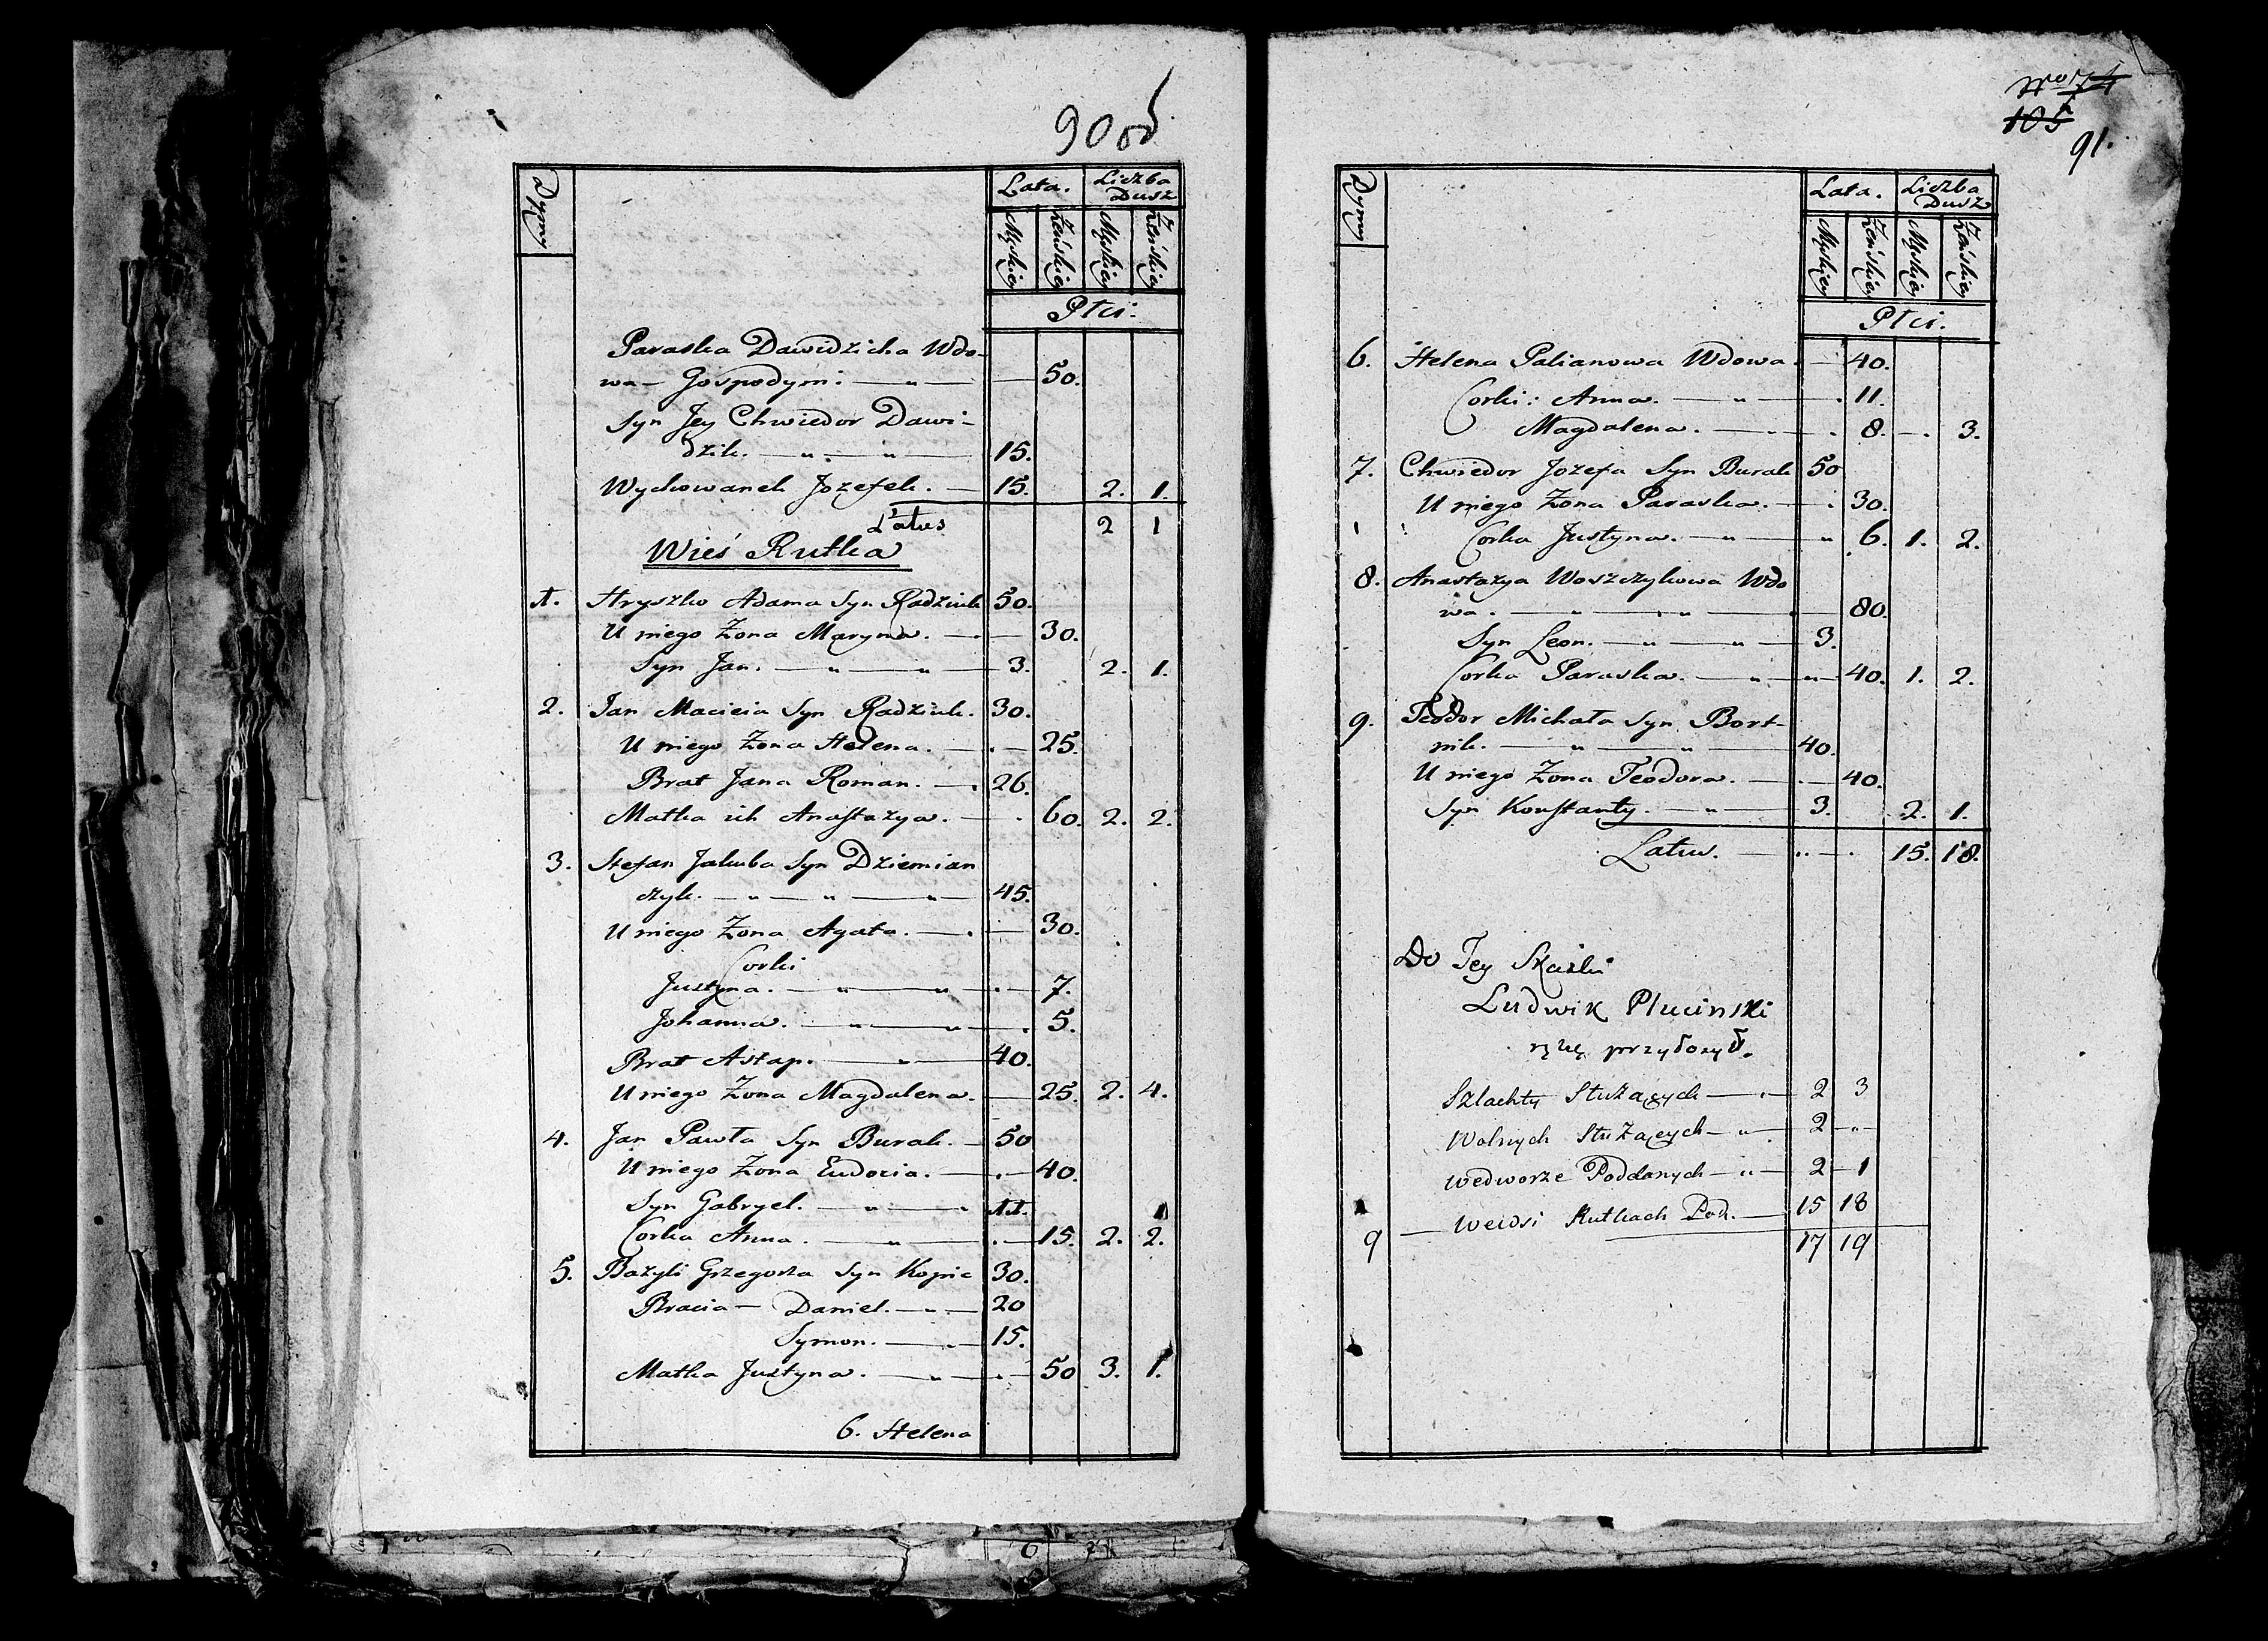 90 об
Dymy
Lata. Liczba Dusz
Męskiey Żeńskiey Męskiey Żeńskiey
Płci.
Paraska Dawidzicha Wdo-
wa - Gospodyni. — " — 50.
Syn Jey Chwiedor Dawi-
dzik. — " — " — 15.
Wychowanek Jozefek. — 15. 2. 1.
Latus 2 1
Wieś Rutka
1. Hryszko Adama Syn Radziuk 50.
U niego Żona Maryna. — 30.
Syn Jan. — " — " — 3. 2. 1.
2. Jan Macieia Syn Radziuk. 30.
U niego Żona Helena. — 25.
Brat Jana Roman. — 26.
Matka ich Anastazya. — 60. 2. 2.
3. Stefan Jakuba Syn Dziemian
czyk. — " — " — " — 45.
U niego Żona Agata. — 30.
Corki
Justyna. — " — " — 7.
Johanna. — " — " — 5.
Brat Astap. — " — 40.
U niego Żona Magdalena. — 25. 2. 4.
4. Jan Pawła Syn Burak. — 50
U niego Żona Eudocia. — 40.
Syn Gabryel. — " — 11.
Corka Anna. — " — 15. 2. 2.
5. Bazyli Grzegorza Syn Kopic 30.
Bracia — Daniel. — " — 20
Symon. — " — 15.
Matka Justyna. — " — 50 3. 1.
6. Helena
105
91.
Dymy
Lata. Liczba Dusz
Męskiey Żeńskiey Męskiey Żeńskiey
Płci.
6. Helena Palianowa Wdowa. — 40.
Corki: Anna. — " — 11.
Magdalena. — " — 8. — 3.
7. Chwiedor Jozefa Syn Burak 50
U niego Żona Paraska. — 30.
Corka Justyna. — " — " 6. 1. 2.
8. Anastazya Woszczykowa Wdo
wa. — " — " — 80.
Syn Leon. — " — " — 3.
Corka Paraska. — " — " — 40. 1. 2.
9. Teodor Michała Syn Bort-
nik. — " — " — 40.
U niego Żona Teodora. — 40.
Syn Konstanty. — " — 3. 2. 1.
Latus. — " — 15. 18.
Do Tey Skazki
Ludwik Plucinski
rękę przyłozył.
Szlachty Służących — " — 2 3
Wolnych Służących — " — 2 — " —
wedworze Poddanych — " — 2 — 1
wewsi Rutkach Pod. — 15 18
9 — 17 19